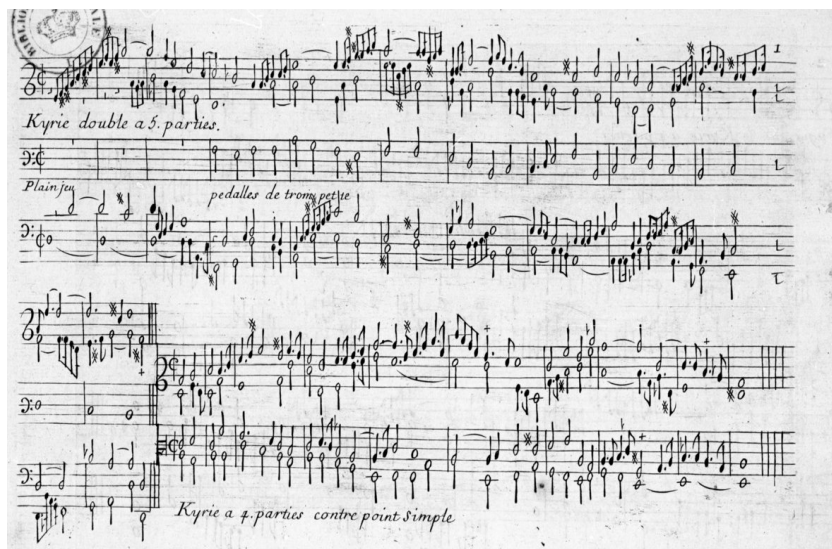 BIBLIO ALE
1
Kyrie double a 5. parties.
Plain jeu
pedalles de trompette
Kyrie a 4. parties contre point Simple